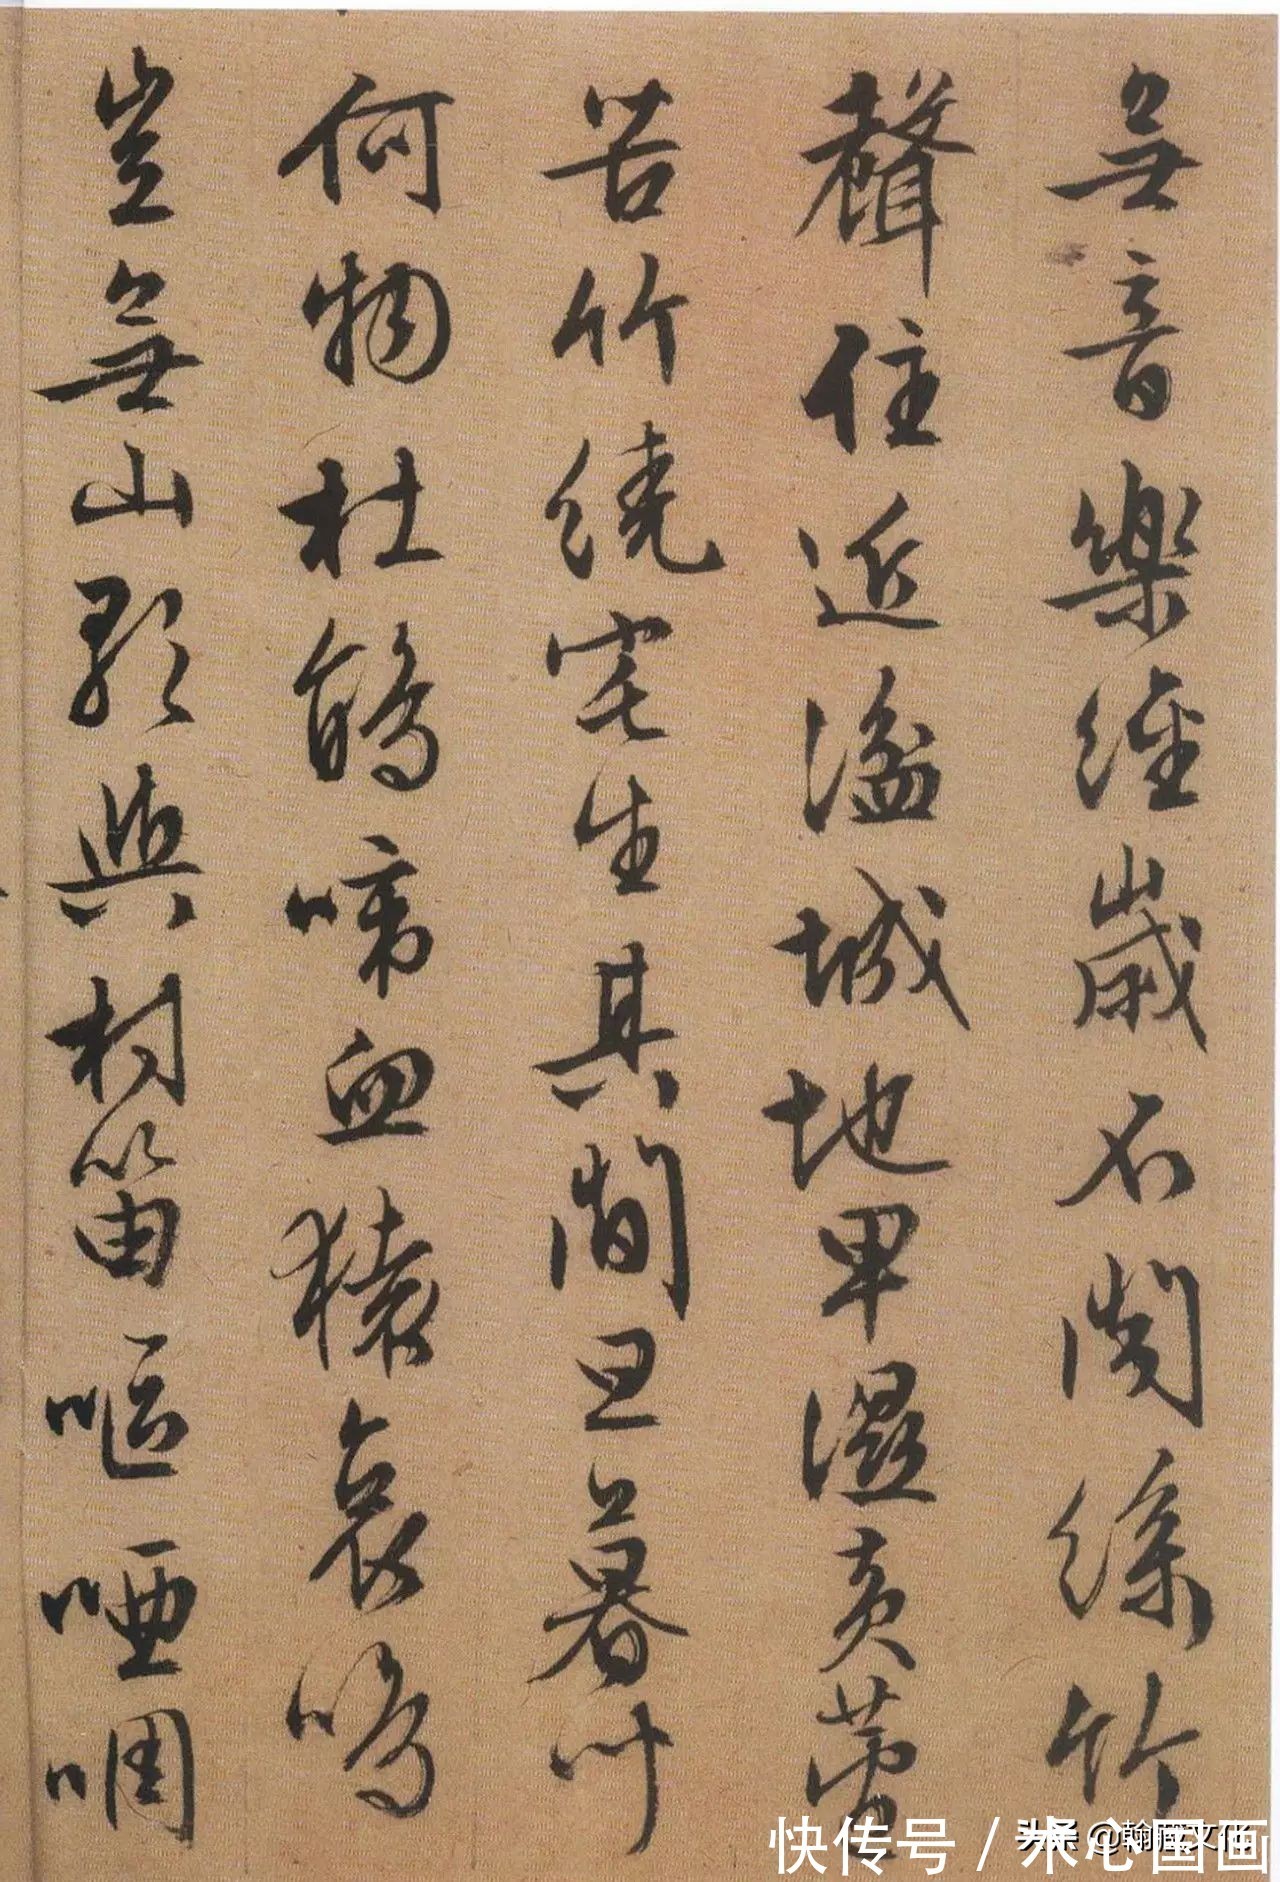 無音樂經歲不聞絲竹
聲住近湓城地卑濕黃蘆
苦竹繞宅生其間旦暮
何物杜鵑啼血猿哀鳴
豈無山歌與村笛嘔啞啁
快传号 / 木心国画